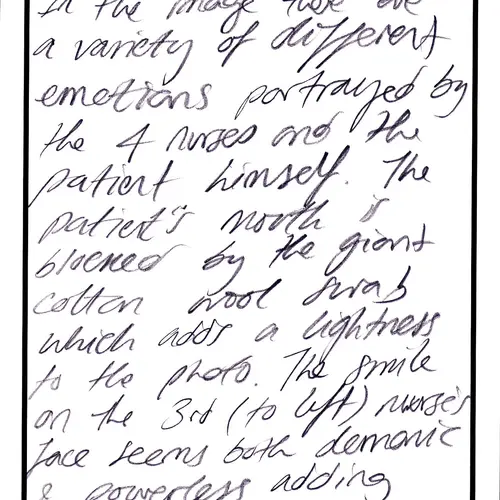 In the image there are
a variety of different
emotions portrayed by
the 4 nurses and the
patient himself. The
patient's mouth is
blocked by the giant
cotton wool swab
which adds a lightness
to the photo. The smile
on the 3rd (to left) nurse's
face seems both demonic
& powerless adding